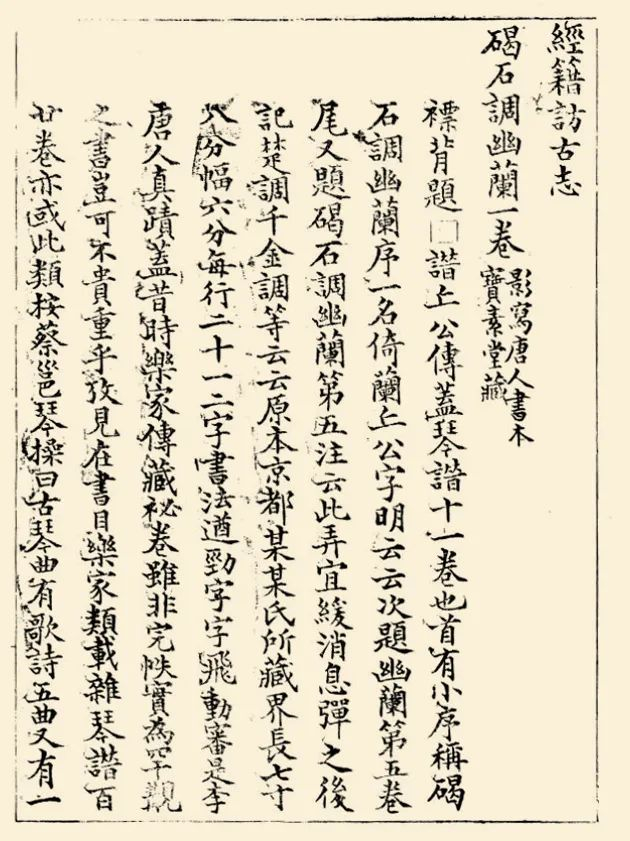 經籍訪古志
碣石調幽蘭一卷
影寫唐人書本
寶素堂藏
褾背題□譜丘公傳蓋琴譜十一卷也首有小序稱碣
石調幽蘭序一名倚蘭丘公字明云云次題幽蘭第五卷
尾又題碣石調幽蘭第五注云此弄宜緩消息彈之後
記楚調千金調等云云原本京都某某氏所藏界長七寸
八分幅六分每行二十一二字書法遒勁字字飛動審是李
唐人真蹟蓋昔時樂家傳藏祕卷雖非完帙實為罕覯
之書豈可不貴重乎攷見在書目樂家類載雜琴譜百
廿卷亦或此類按蔡邕琴操曰古琴曲有歌詩五曲又有一